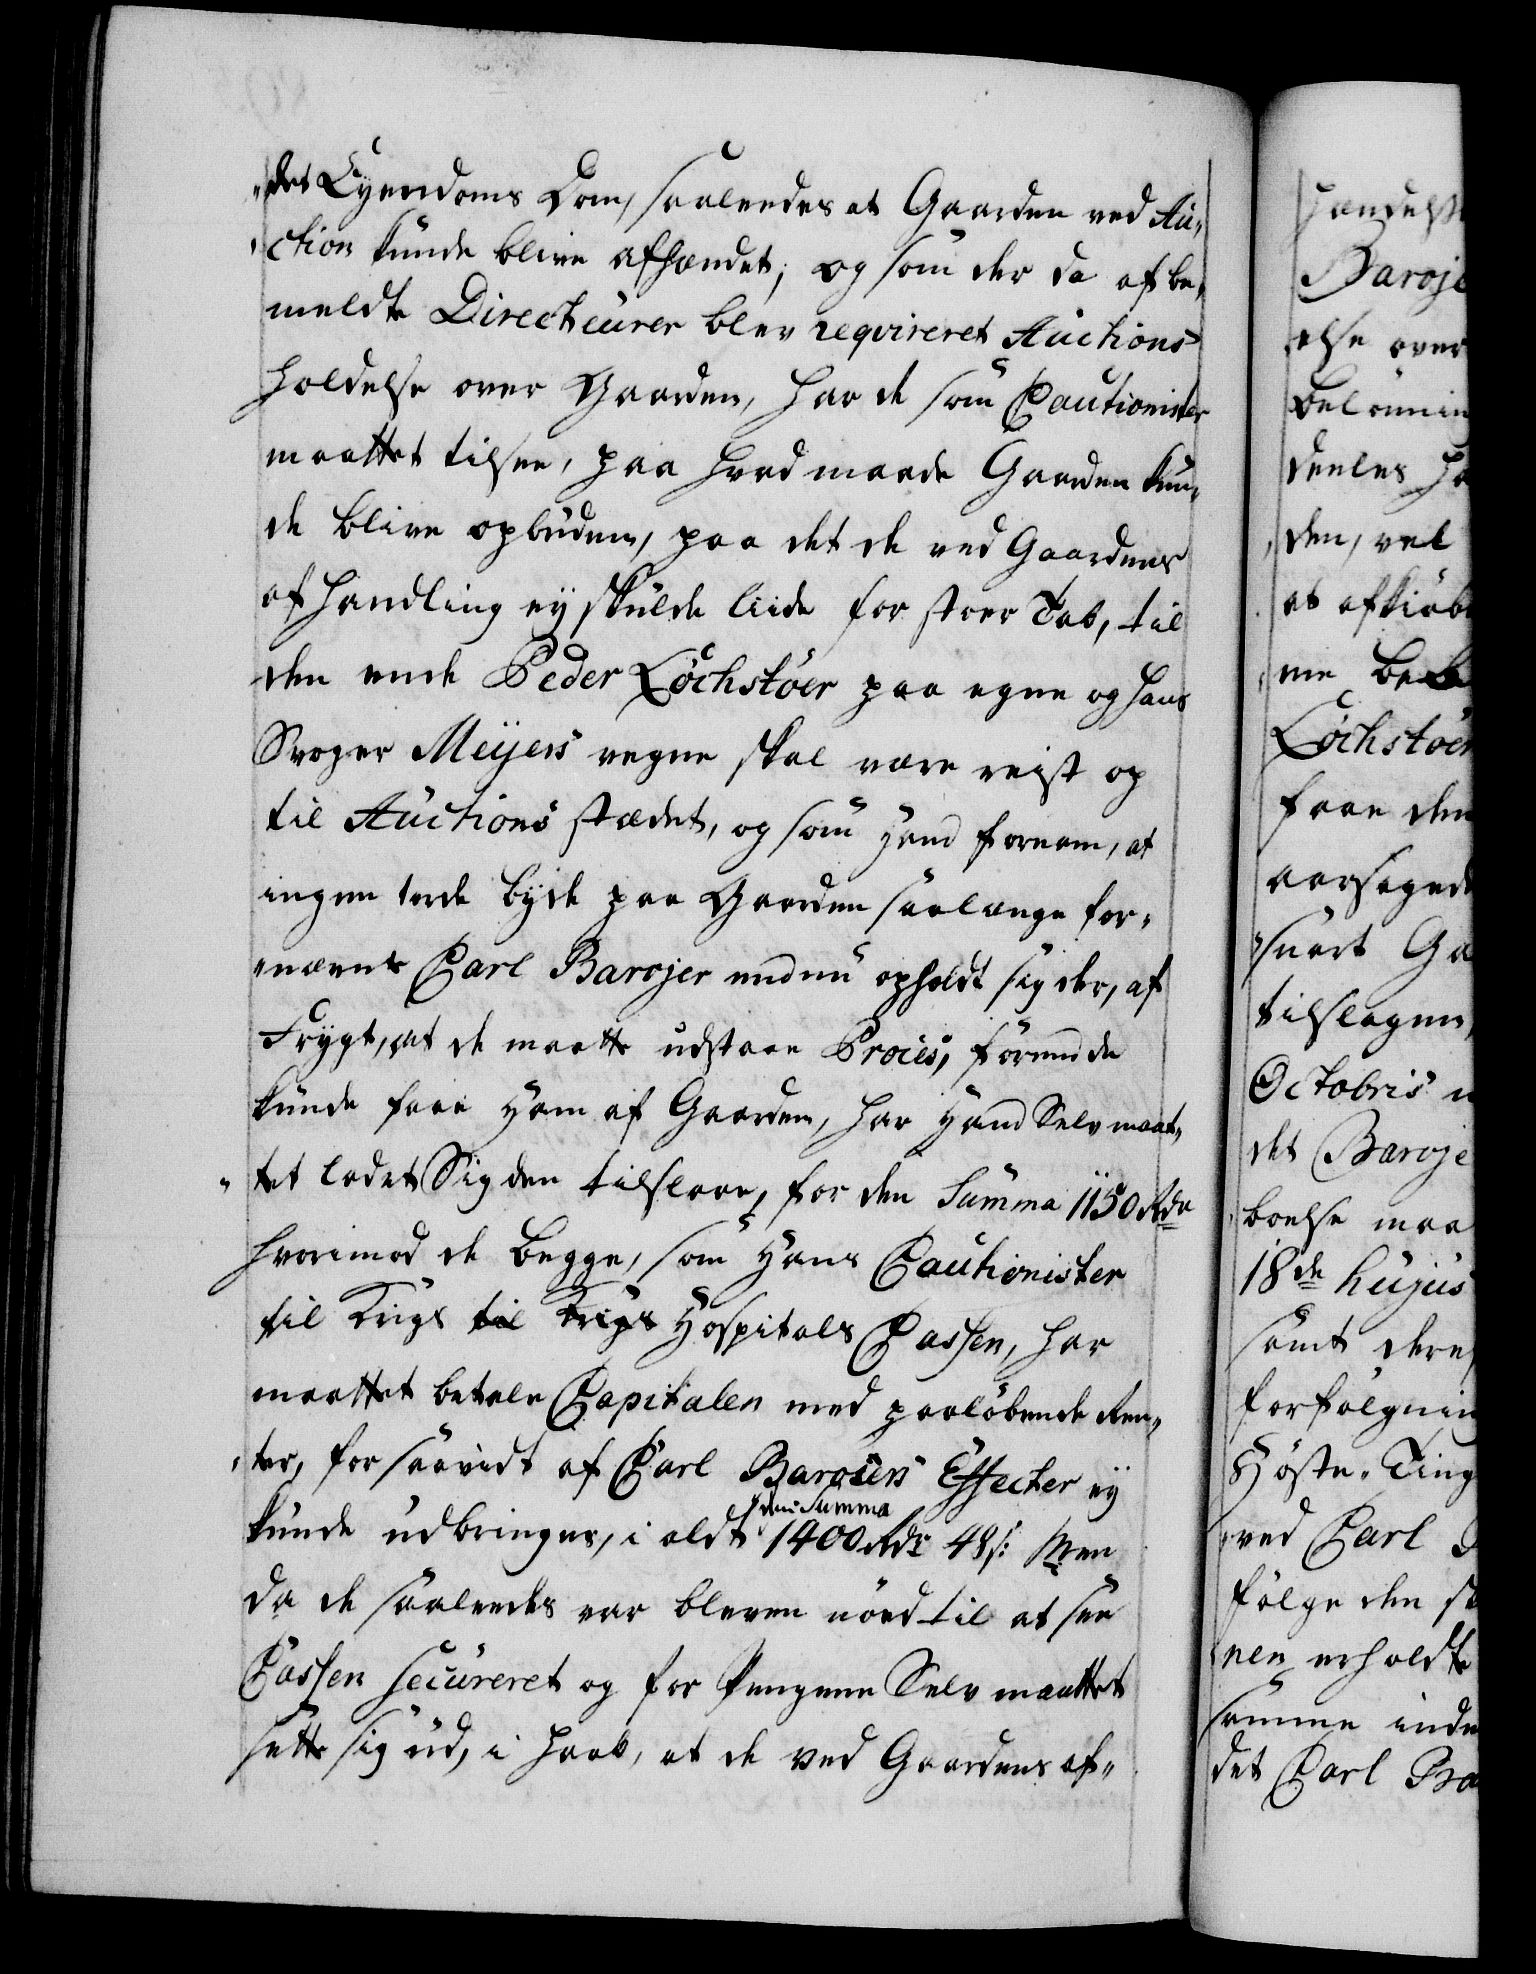 "det Eyendoms Dom, saaleedes at Gaarden ved Au„
„ction kunde blive afhændet; og som der da af be„
meldte Directeurer blev reqvireret Auctions
holdelse over Gaarden, har de som Cautionister
maattet tilsee, paa hvad maade Gaarden kun„
de blive opbuden, paa det de ved Gaardens
afhandling ey skulde liide for stoer Tab, til
den ende Peder Löchstöer paa egne og hans
Svoger Meijers vegne skal være reist op
til Auctions stædet, og som Hand fornam, at
ingen torde byde paa Gaarden saalænge for„
„nævnte Carl Barojer endnu opholdt sig der, af
Frygt, at de maatte udstaae Proces, förend de
kunde faae Ham af Gaarden, har Hand Selv maat„
„tet ladet Sig den tilslaae, for den Summa 1150 Rdr
hvorimod de begge, som Hans Cautionister
til Krigs til Krigs Hospitals Cassen, har
maattet betale Capitalen med paalöbende Ren„
„ter, for saavidt af Carl Barojers Effecter ey
kunde udbringes, i aldt den Summa 1400 Rdr 48 s: Men
da de saaleedes var bleven nöed til at see
Cassen secureret og for Pengene Selv maattet
sætte sig ud, i Haab, at de ved Gaardens af„
hændelse
Baroje
else over
belönnin
deeles ha
den, vel
at afkiöb
me be
Löchstöer
faae den
aarsaged
snart Ga
tilslagen,
Octobris
det Baroje
boelse maa
18de hujus
samt dere
forfölgnin
Höste-Ting
ved Carl
fölge den
nen erholdte
samme inde
det Carl Ba